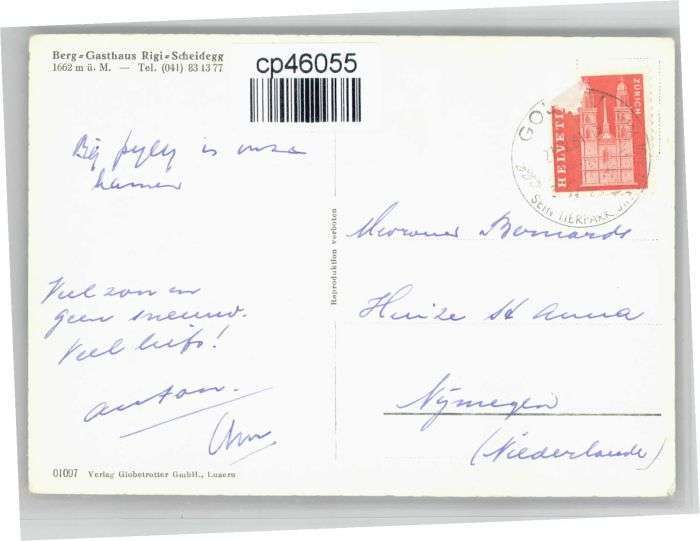 Berg-Gasthaus Rigi-Scheidegg
1662 m ü. M. — Tel. (041) 83 13 77
cp46055
is onze
kamer
Veel zon en
geen sneeuw.
Veel liefs!
Anton.
Reproduktion verboten
HELVETIA
ZÜRICH
GOL
SEIN TIERPARK
Mevrouw Bernards
Huize St Anna
Nijmegen
(Niederlande)
01097 Verlag Globetrotter GmbH., Luzern